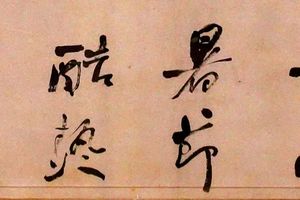 暑節
酷熱